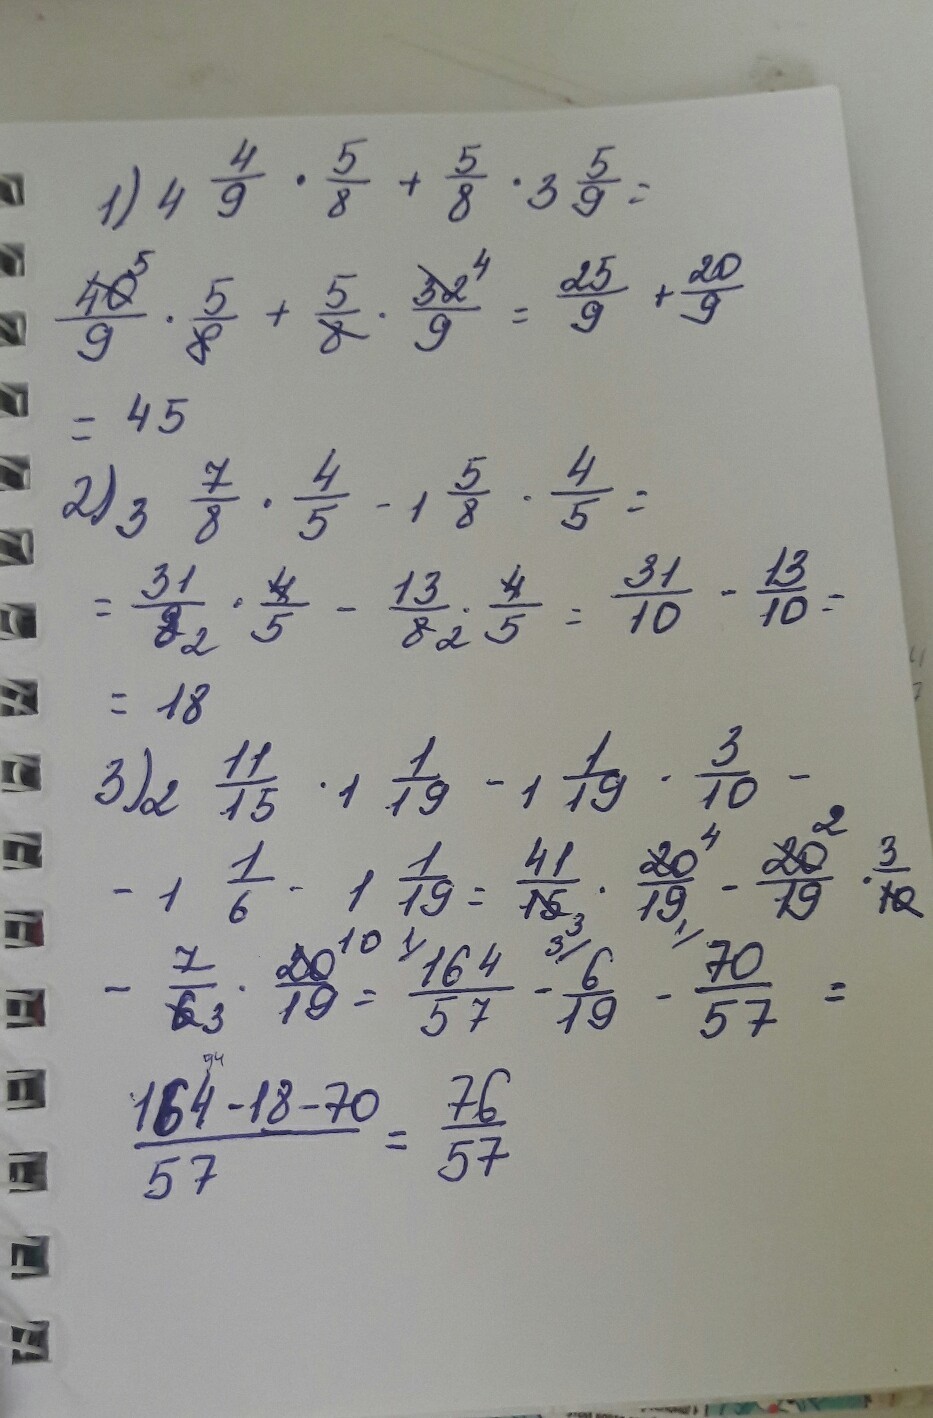 1) 4 4/9 · 5/8 + 5/8 · 3 5/9 =
40⁵/9 · 5/8 + 5/8 · 32⁴/9 = 25/9 + 20/9
= 45
2) 3 7/8 · 4/5 - 1 5/8 · 4/5 =
= 31/8₂ · 4/5 - 13/8₂ · 4/5 = 31/10 - 13/10 =
= 18
3) 2 11/15 · 1 1/19 - 1 1/19 · 3/10 -
- 1 1/6 · 1 1/19 = 41/15₃ · 20⁴/19 - 20²/19 · 3/10
- 7/6₃ · 20¹⁰/19 = ¹⁾164/57 - ³⁾6/19 - ¹⁾70/57 =
164 - 18 - 70/57 = 76/57